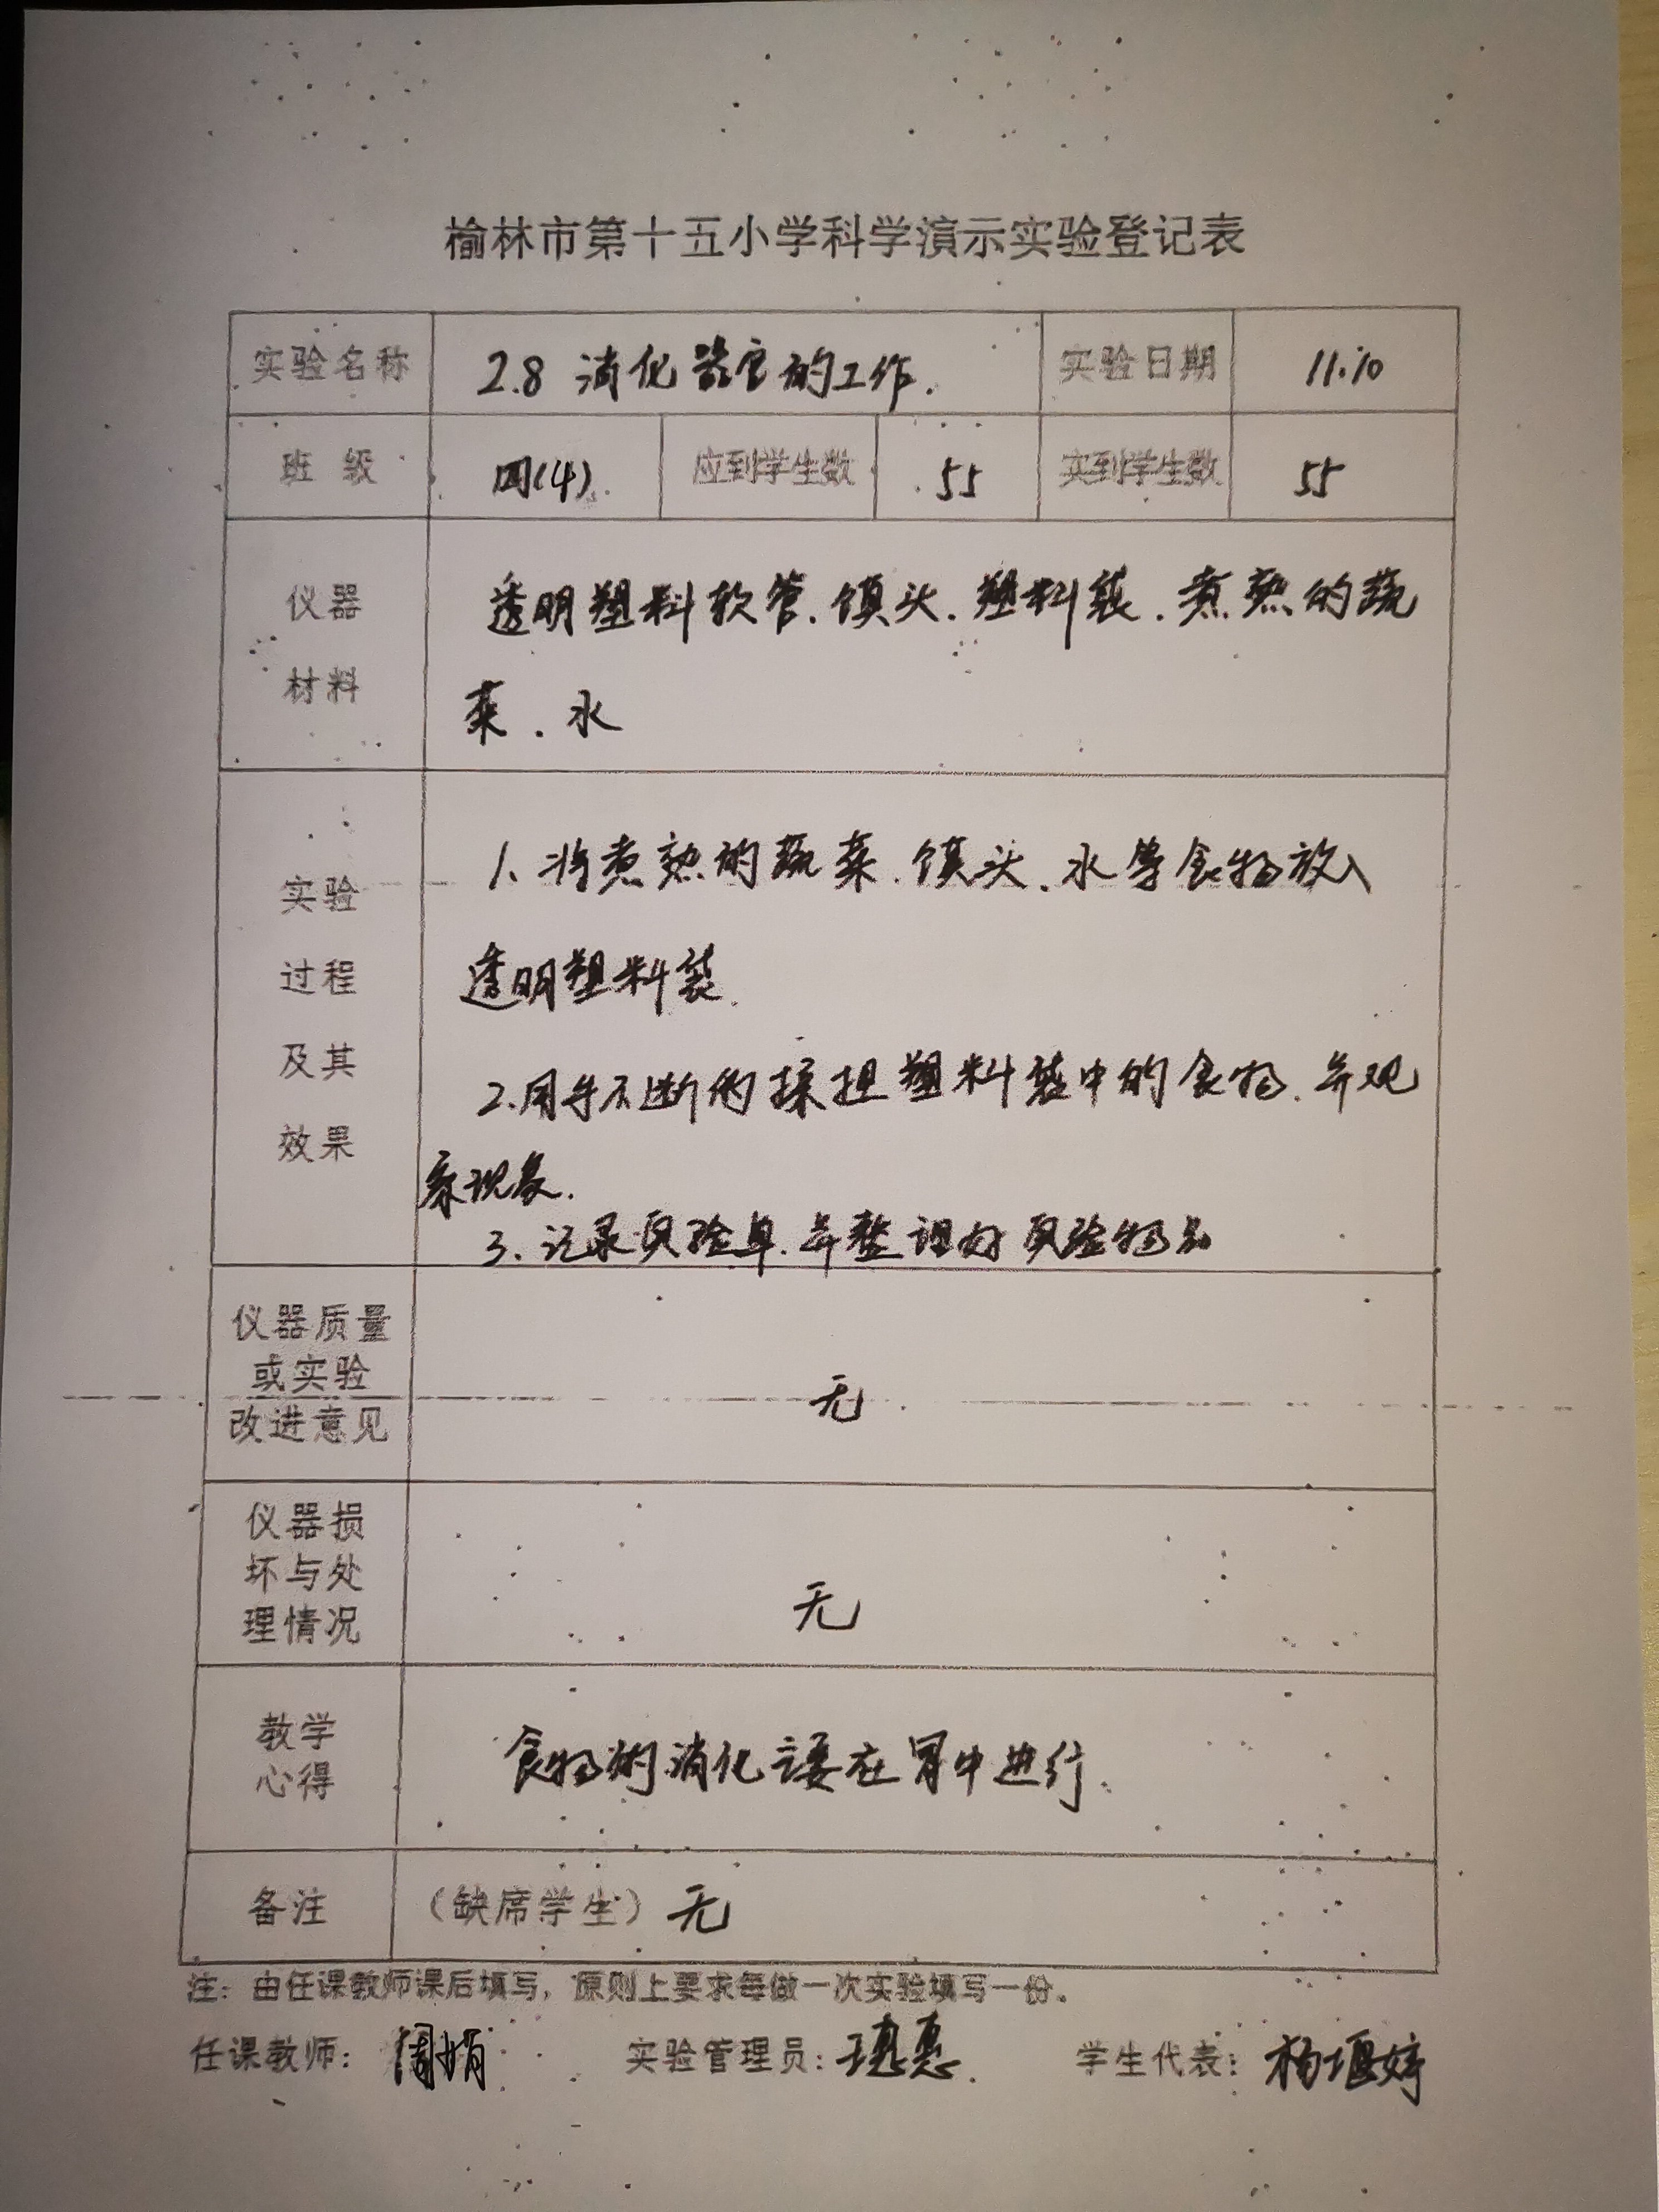 榆林市第十五小学科学演示实验登记表
实验名称 2.8 消化器官的工作. 实验日期 11.10
班 级 四(4) 应到学生数 55 实到学生数 55
仪器
材料
透明塑料软管.馍头.塑料袋.煮熟的蔬
菜.水
实验
过程
及其
效果
1.将煮熟的蔬菜.馍头.水等食物放入
透明塑料袋.
2.用手不断的揉捏塑料袋中的食物.并观
察现象.
3.记录实验单.并整理好实验物品
仪器质量
或实验
改进意见
无
仪器损
坏与处
理情况
无
教学
心得
食物的消化主要在胃中进行.
备注 （缺席学生）无
注：由任课教师课后填写，原则上要求每做一次实验填写一份。
任课教师：周娟 实验管理员： 学生代表：杨堰婷